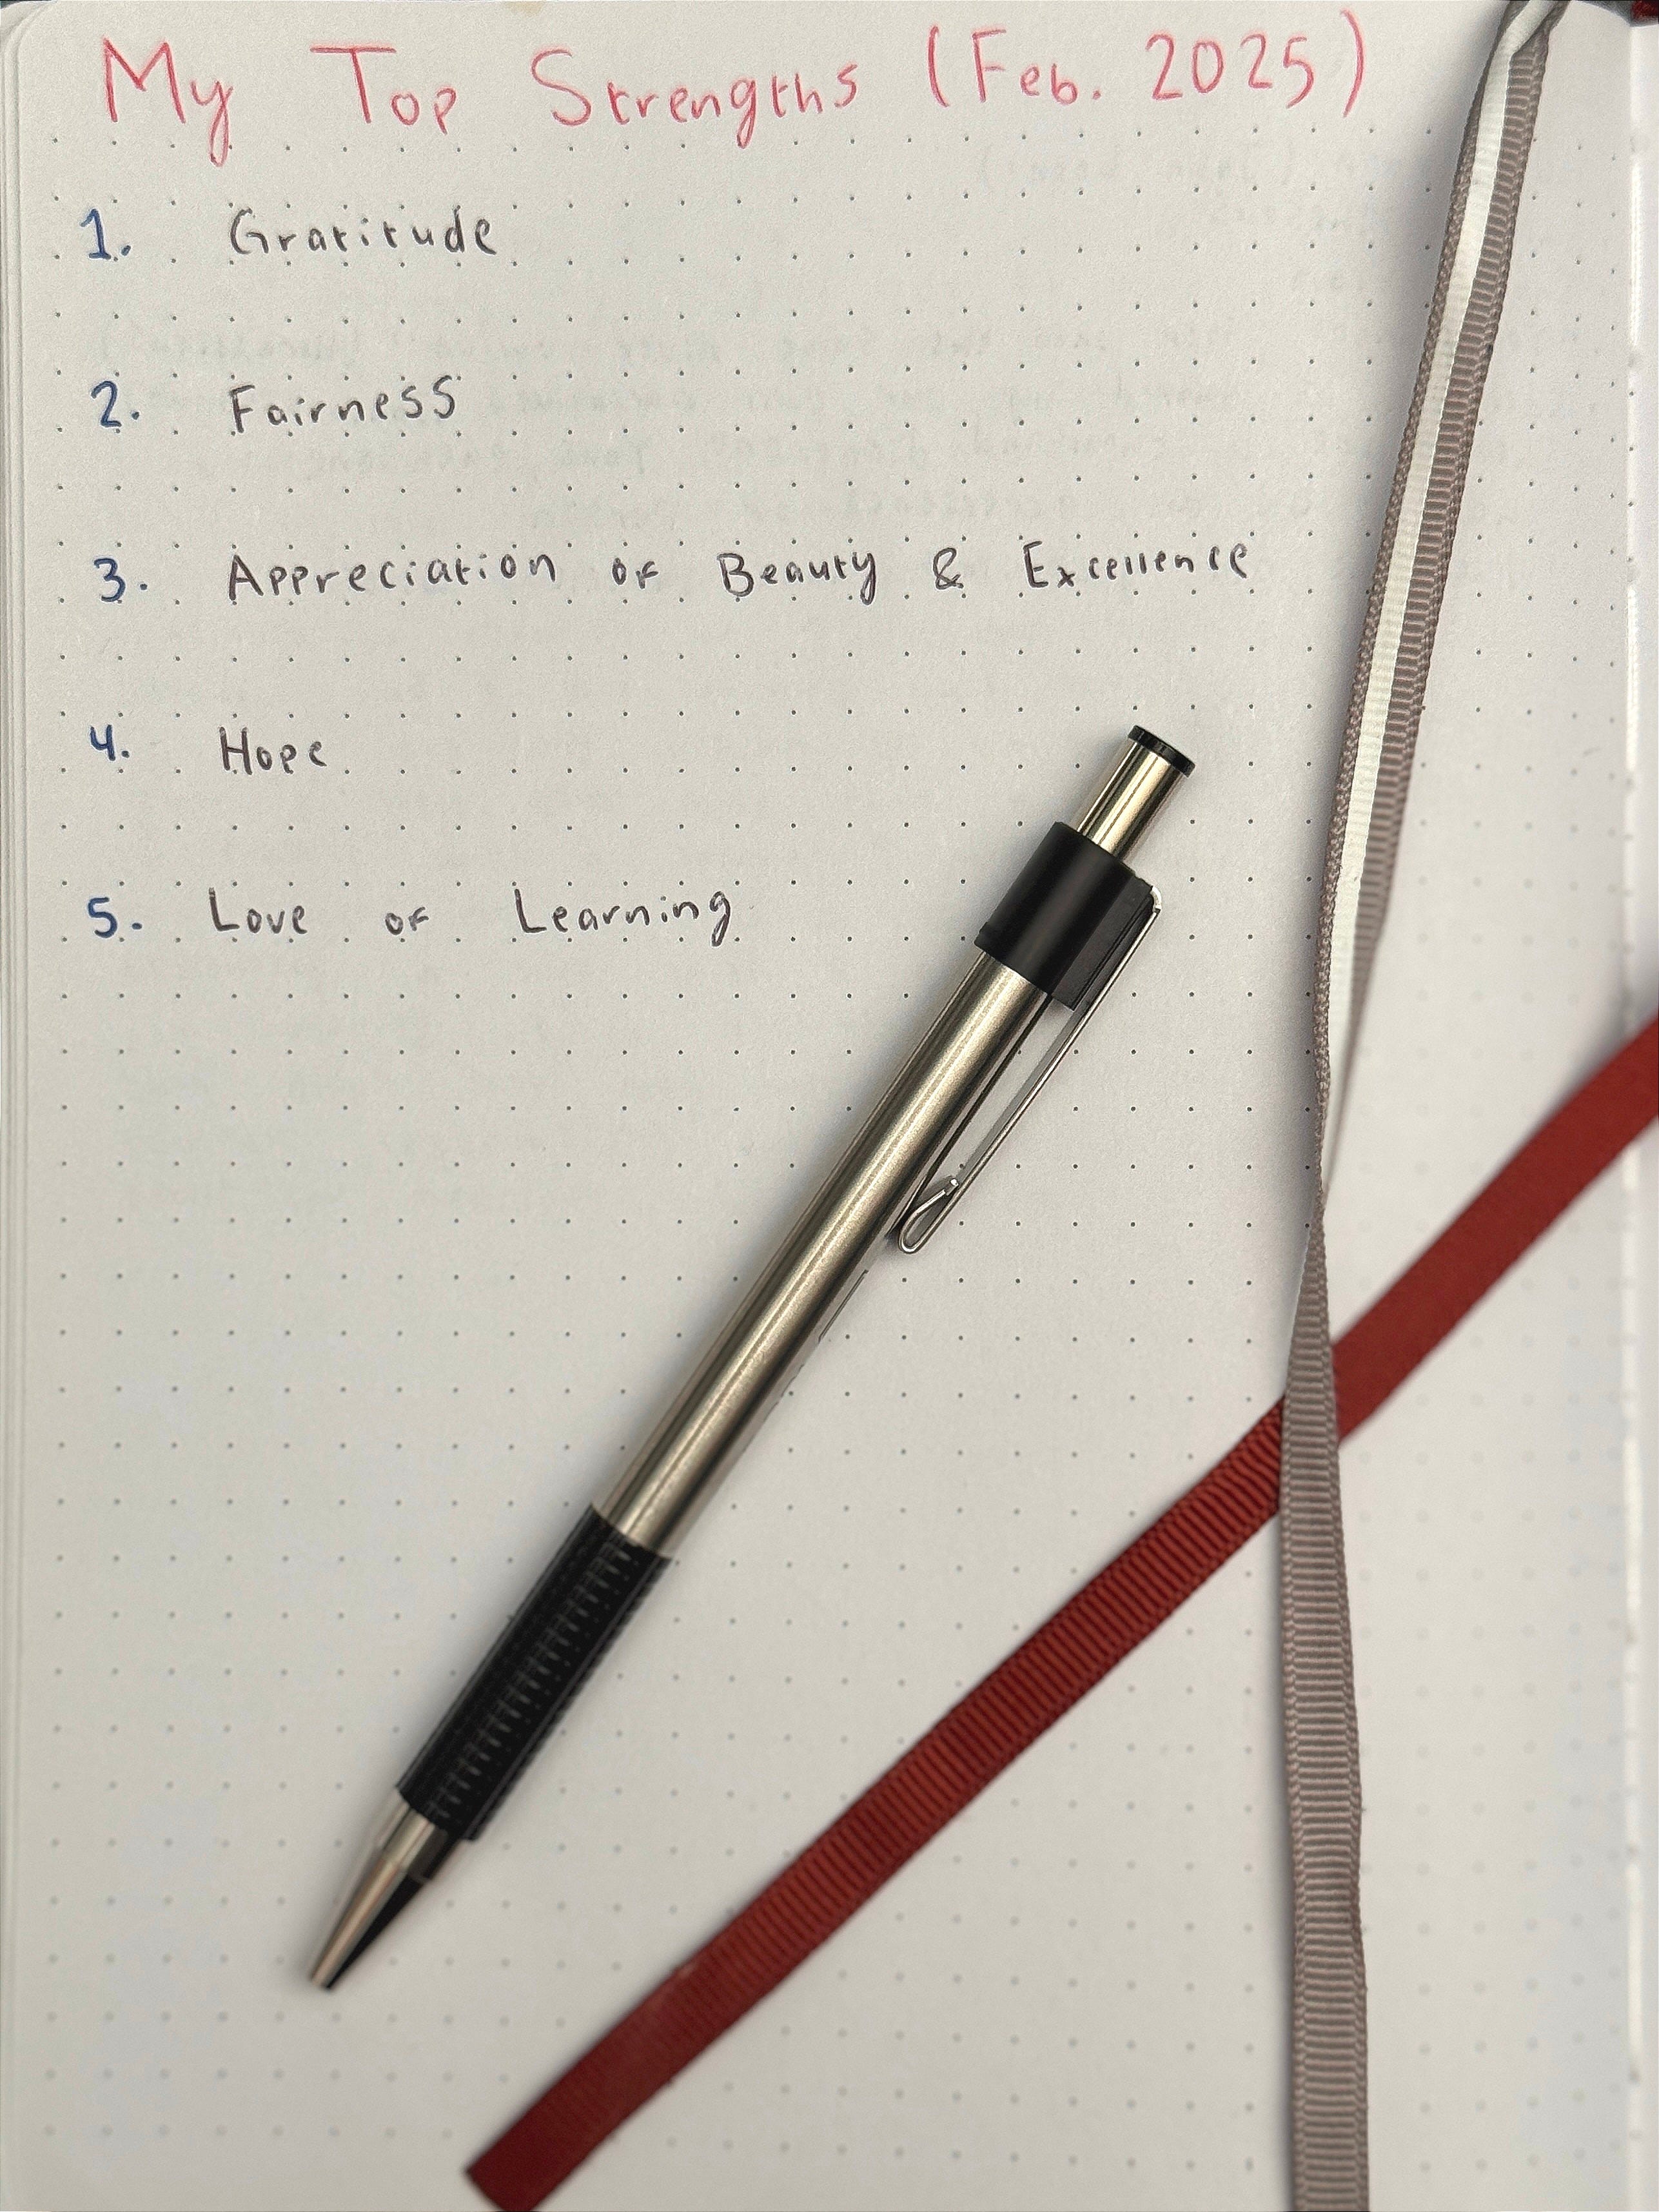 My Top Strengths (Feb. 2025)
1. Gratitude
2. Fairness
3. Appreciation of Beauty & Excellence
4. Hope
5. Love of Learning